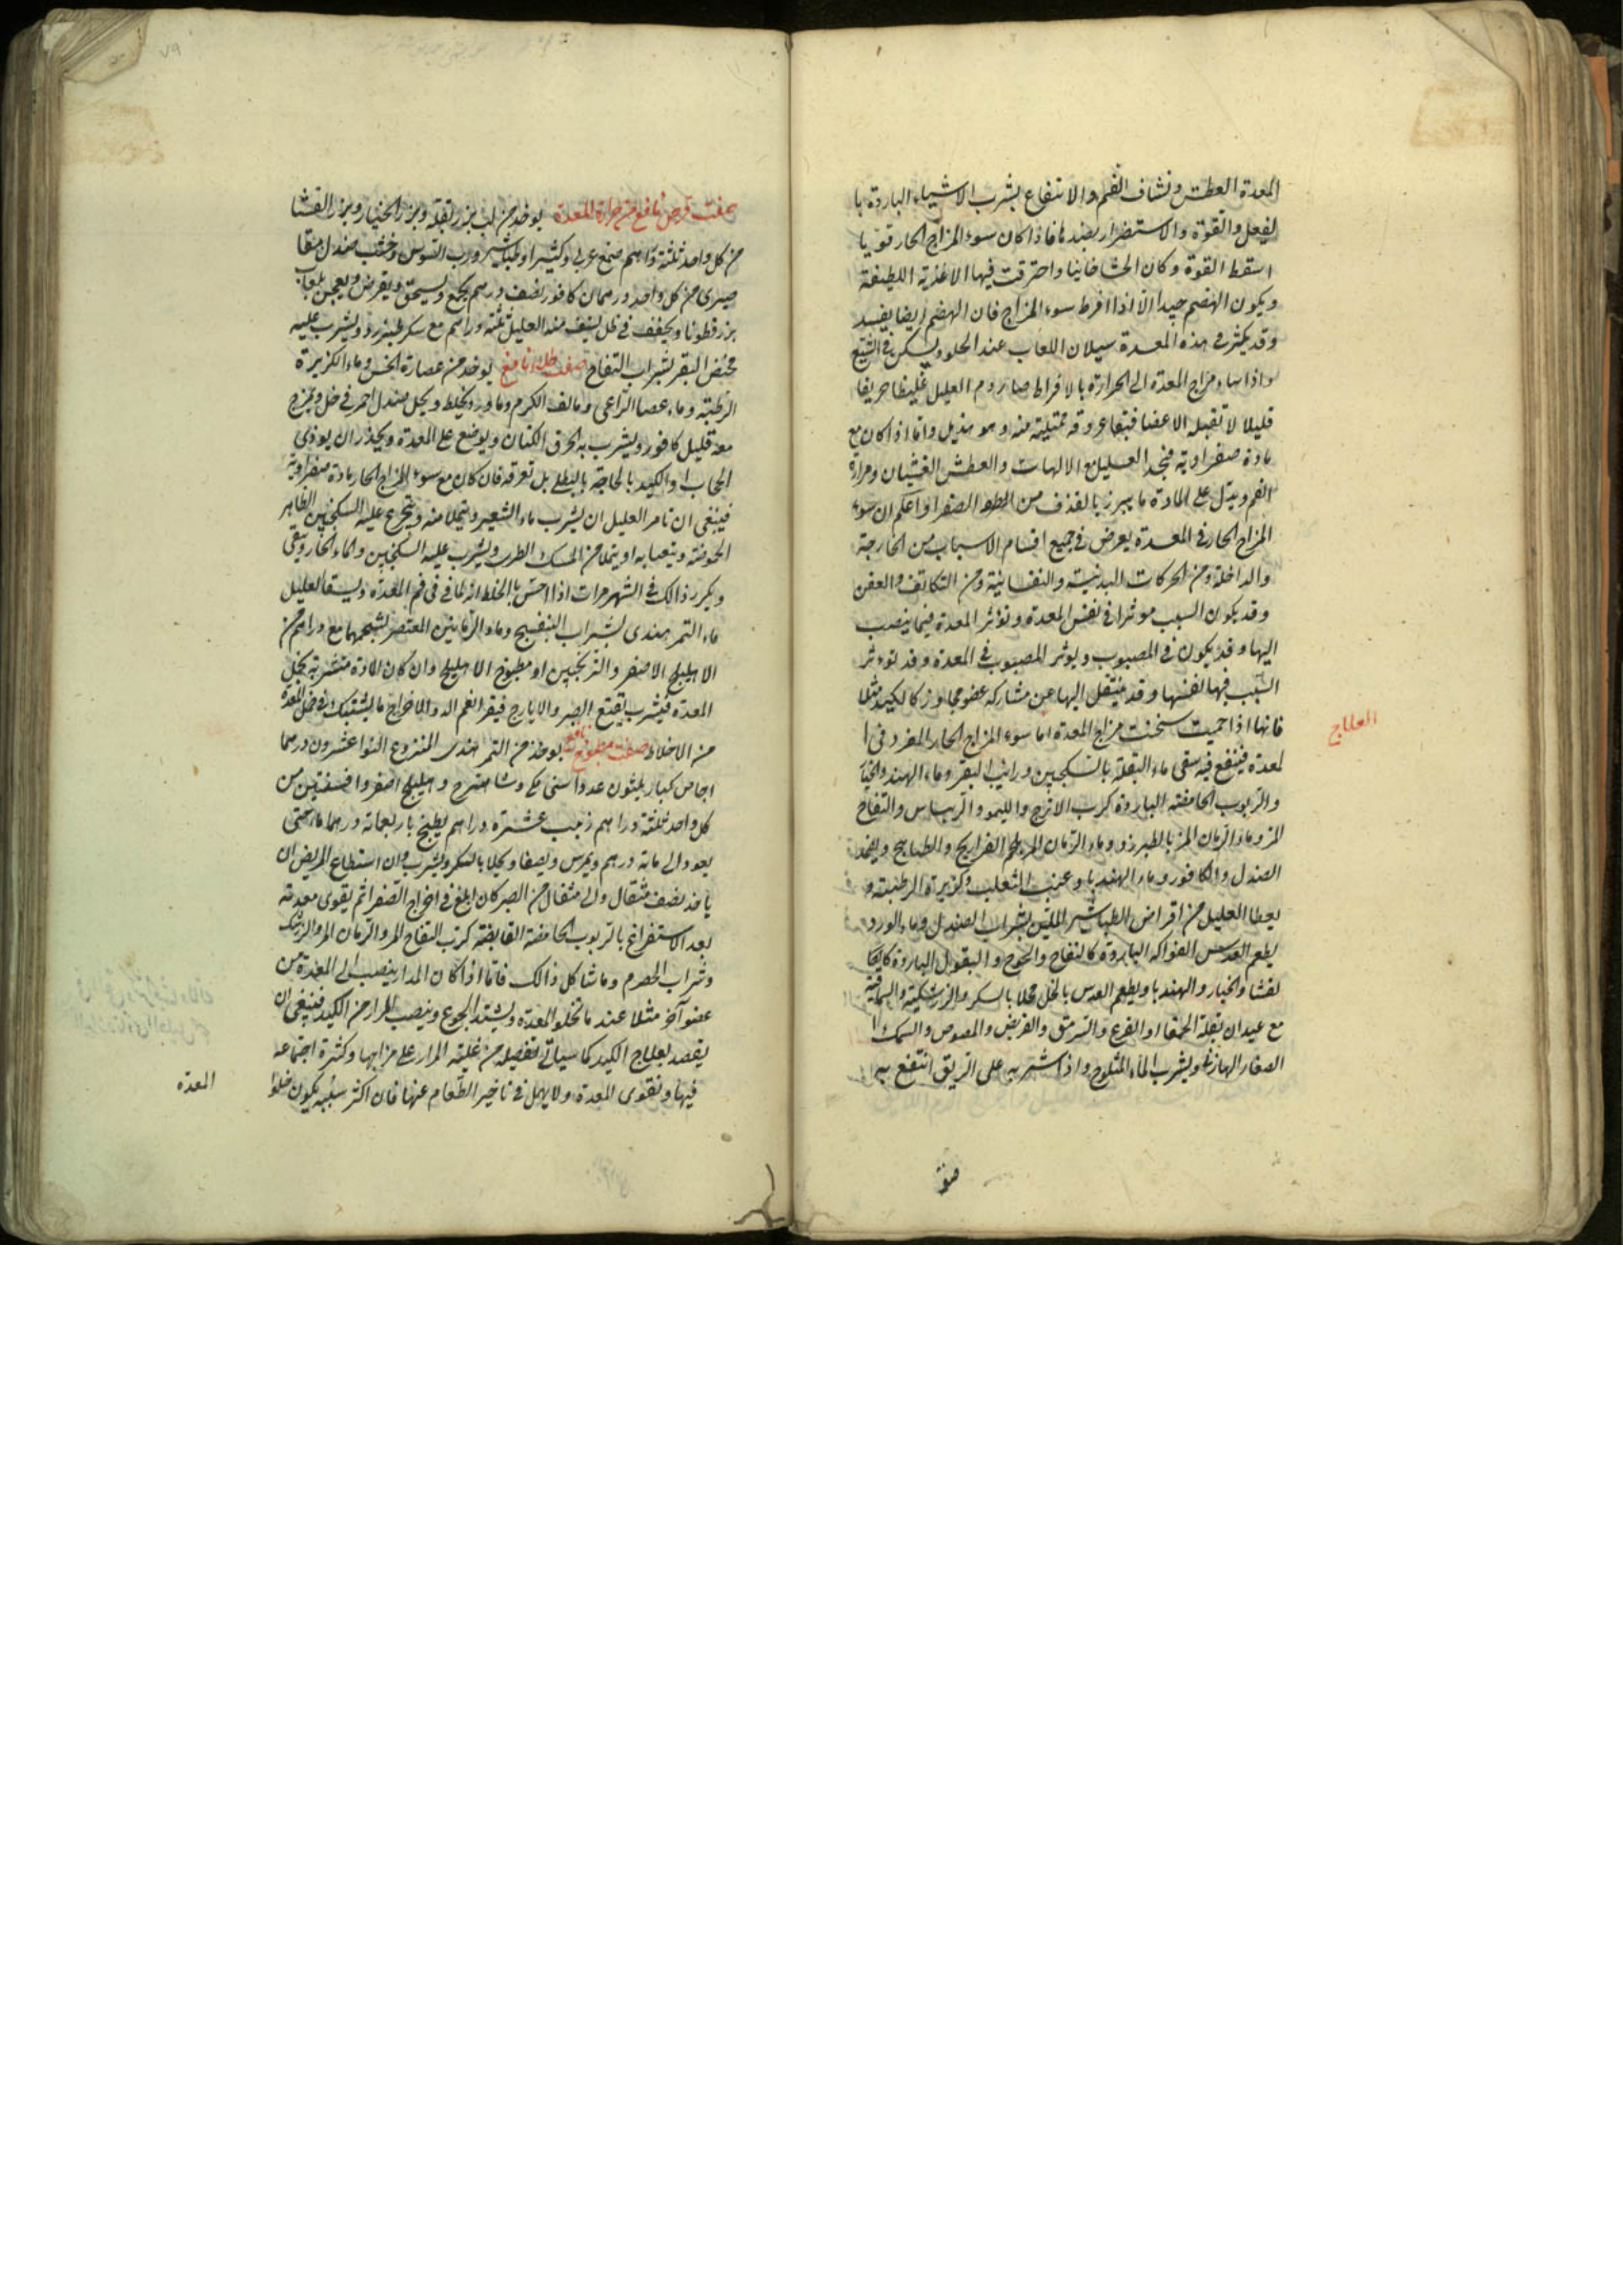 المعدة العطش ونشاف الفم والانتفاع بشرب الاشياء الباردة با
لفعل والقوة والاستضرار بضدها فاذا كان سوء المزاج الحار قويا
اسقط القوة وكان الحشا واحترقت فيها الاغذية اللطيفة
ويكون الهضم جيدا الا اذا افرط سوء المزاج فان الهضم ايضا يفسد
وقد يكثر فى هذه المعدة سيلان اللعاب عند الخلو ويسكن فى الشبع
واذا ساء مزاج المعدة الى الحرارة بالافراط صار دم العليل غليظا حريفا
قليلا لا تقبله الاعضا فتبقا عروقه ممتلية منه وهو هزيل واما اذا كان مع
مادة صفراوية فيجد العليل مع الالهاب والعطش الغشيان ومرارة
الفم ويدل على المادة ما يبرز بالقذف من الصفرا واعلم ان سوء
المزاج الحار فى المعدة يعرض فى جميع اقسام الاسباب من الخارجة
والداخلة ومن الحركات البدنية والنفسانية ومن التكاثف والعفن
وقد يكون السبب موثرا فى نفس المعدة وتؤثر المعدة فيما ينصب
اليها وقد يكون فى المصبوب ويوثر المصبوب فى المعدة وقد توءثر
السبب فيها لنفسها وقد ينتقل اليها عن مشاركة عضو مجاور كالكبد مثلا
فانها اذا حميت سخنت مزاج المعدة اما سوء المزاج الحار المفرد فى ا
العلاج
لمعدة فينفع فيه سقى ماء البقلة بالسكنجبين ورايب البقر وماء الهندبا
والربوب الحامضة الباردة كرب الاترج والليمو والريباس والتفاح
المز وماء الرمان المز بالطبرزد وماء الرمان المز بلحم الفراريج والطياهيج ويضمد
الصندل والكافور وماء الهندبا وعنب الثعلب وكزبرة الرطبة و
يعطا العليل من اقراص الطباشير الملين بشراب الصندل وماء الورد
يطعم الفواكه الباردة كالتفاح والخوخ والبقول الباردة كا
لقثا والخيار والهندبا ويطعم العدس بالخل محلا بالسكر والزرشكية والسماقية
مع عيدان بقلة الحمقا او القرع والسرمق والقريض والمصوص والسمك ا
لصغار الهازبا ويشرب الماء المثلوج واذا شربه على الريق انتفع به
صفة
صفت قرص نافع من حرارة المعدة يوخذ من لب بزر بقلة وبزر الخيار وبزر القثا
من كل واحد ثلثة دراهم صمغ عربى وكثيرا وطباشير ورب السوس وخشب صندل مقا
صيرى من كل واحد درهمان كافور نصف درهم يجمع ويسحق ويقرص ويعجن بلعاب
بزر قطونا ويجفف فى ظل يسف منه العليل ثلثة دراهم مع سكر طبرزد ويشرب عليه
مخيض البقر بشراب التفاح صفت طلا نافع يوخذ من عصارة الخس وماء الكزبرة
الرطبة وماء عصا الراعى وماء لف الكرم وماورد يخلط ويحل صندل احمر فى خل ويمزج
معه قليل كافور ويشرب به الخرق الكتان ويوضع على المعدة ويحذر ان يوذى
الحجاب او الكبد بل تعرفه فان كان مع سوء المزاج الحار مادة صفراوية
فينبغى ان تامر العليل ان يشرب ماء الشعير ويتملا منه ويتجرع عليه السكنجبين الظاهر
الحموضة ويتعيا به او يتملا من السمك الطرى ويشرب عليه السكنجبين والماء الحار ويتقى
ويكرر ذالك فى الشهر مرات اذا احس بالخلط انه طافى فى فم المعدة ويسقا العليل
ماء التمر هندى بشراب البنفسج وماء الرمانين المعتصر بشحمهما مع دراهم من
الاهليلج الاصفر والترنجبين او مطبوخ الاهليلج وان كان المادة متشربة بخمل
المعدة فيشرب نقيع الصبر والايارج فيقرا نعم الدوا لاخراج ما يتشبك فى خمل المعدة
من الاخلاط صفت مطبوخ نافع له يوخذ من التمر هندى المنزوع النوا عشرون درهما
اجاص كبار ثلثون عددا وشاهترج واهليلج اصفر وافسنتين من
كل واحد ثلثة دراهم زبيب عشرة دراهم يطبخ باربعمائة درهما ماء حتى
يعود الى مائة درهم ويمرس ويصفا ويحلا بالسكر ويشرب وان استطاع المريض ان
ياخذ نصف مثقال والى مثقال من الصبر كان ابلغ فى اخراج الصفرا ثم يقوى معدته
بعد الاستفراغ بالربوب الحامضة القابضة كرب التفاح المز والرمان المز والزرشك
وشراب الحصرم وما شاكل ذالك فاما اذا كان المرار ينصب الى المعدة من
عضو آخر مثلا عند ما تخلو المعدة ويشتد الجوع وينصب المرار من الكبد فينبغى ان
يقصد بعلاج الكبد كما سياتى تفصيله من غلبة المرار على مزاجها وكثرة اجتماعه
فيها وتقوى المعدة ولا يهمل فى تاخير الطعام عنها فان اكثر سببه يكون خلو
المعدة